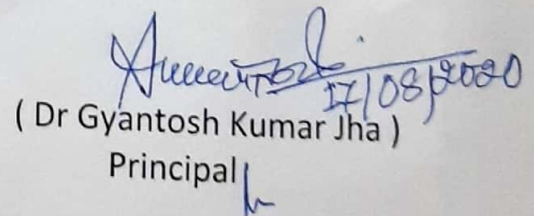 17/08/2020
( Dr Gyantosh Kumar Jha )
Principal